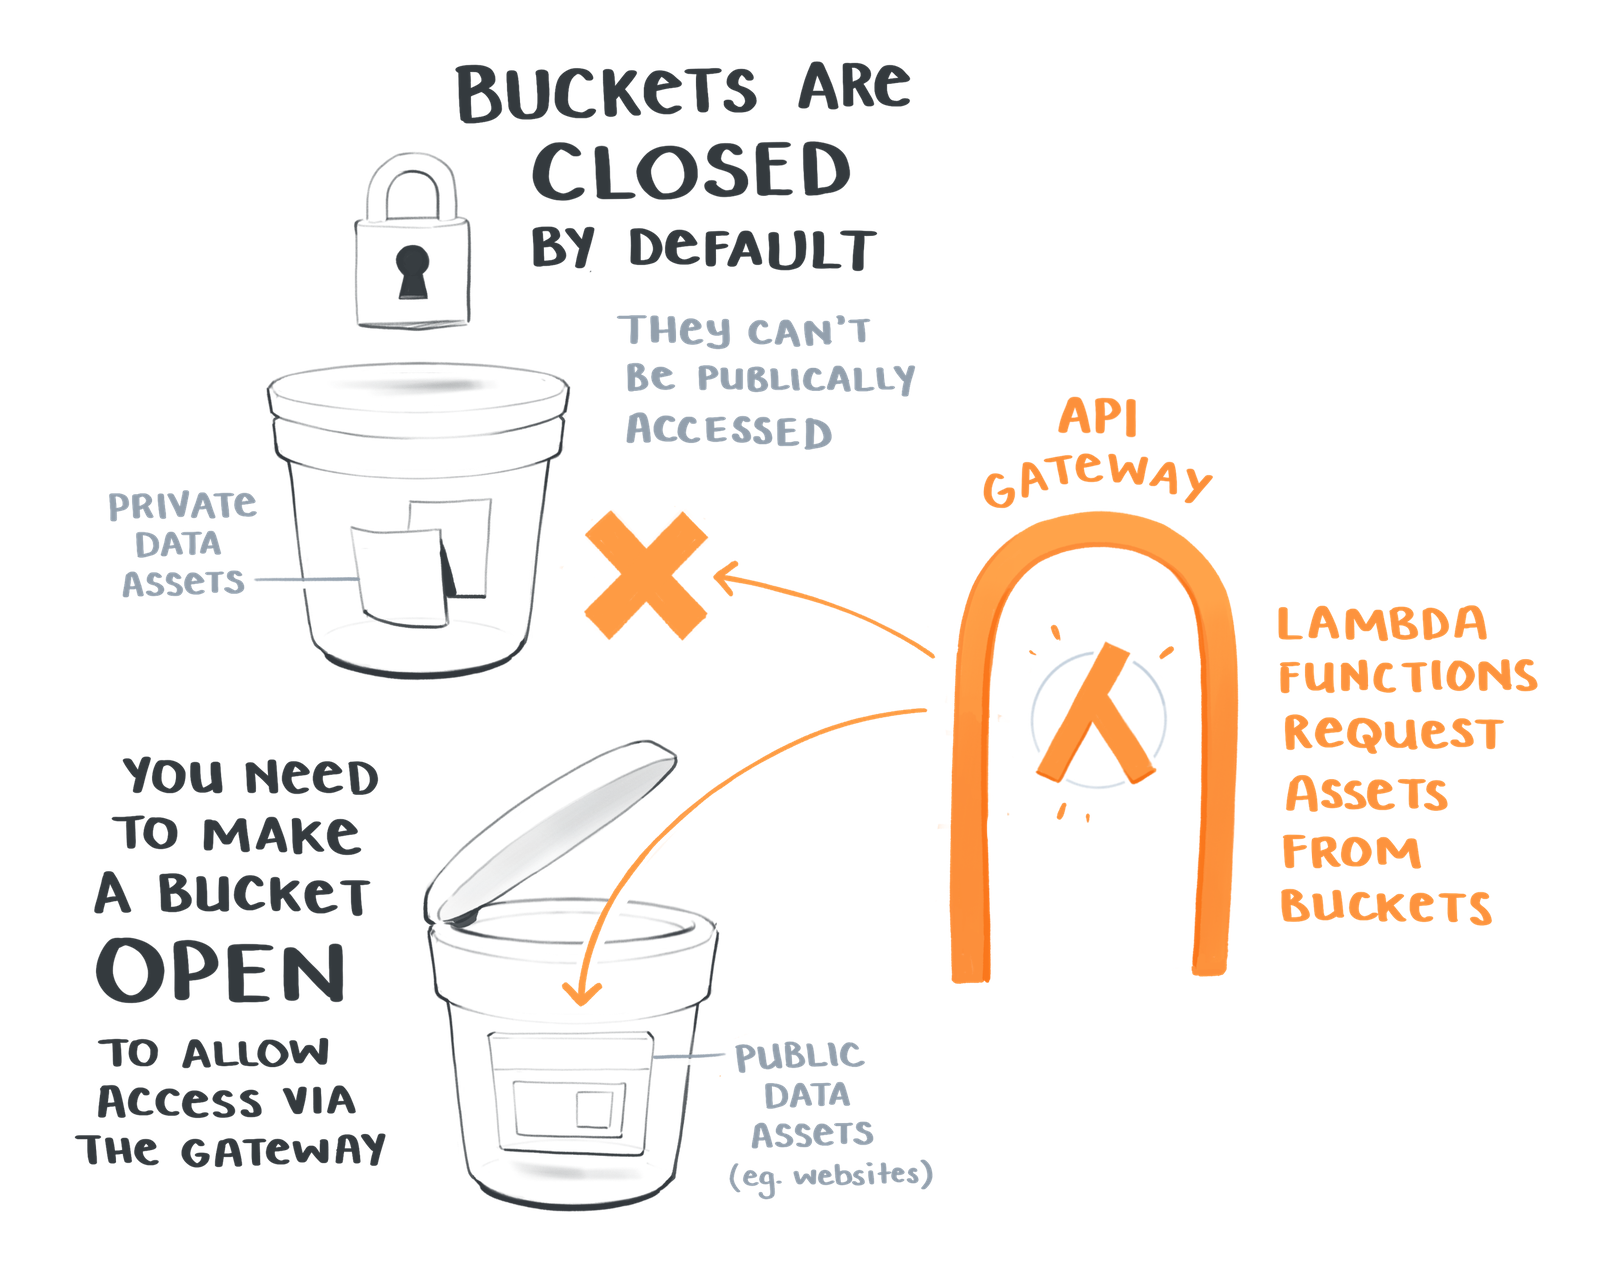 BUCKETS ARE
CLOSED
BY DEFAULT
THEY CAN'T
BE PUBLICALLY
ACCESSED
PRIVATE
DATA
ASSETS
API
GATEWAY
LAMBDA
FUNCTIONS
REQUEST
ASSETS
FROM
BUCKETS
YOU NEED
TO MAKE
A BUCKET
OPEN
TO ALLOW
ACCESS VIA
THE GATEWAY
PUBLIC
DATA
ASSETS
(eg. websites)